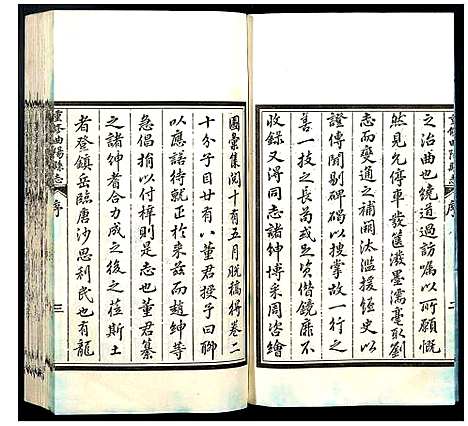 之治曲也繞道過訪囑以所願慨
然見允停車發篋潑墨濡毫取劉
志而變通之補闕汰濫援經史以
證傳聞剔碑碣以搜掌故一行之
善一技之長苟或美必偕鏡靡不
收錄又得同志諸紳博采周咨繪
重修曲陽縣志
序
二
圖彙集閱十有五月脫稿得卷二
十分子目廿有八董君授予曰聊
以應諾待就正於來茲而趙紳等
急倡捐以付梓則是志也董君纂
之諸紳者合力成之後之蒞斯土
者登鎮岳臨唐沙思利民也有龍
重修曲陽縣志
序
三